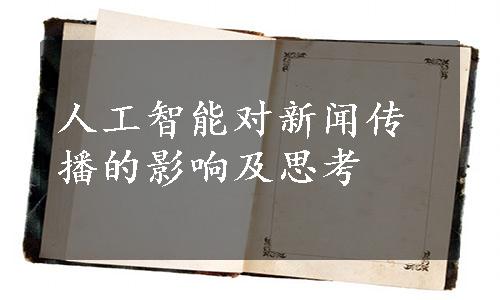 人工智能对新闻传
播的影响及思考